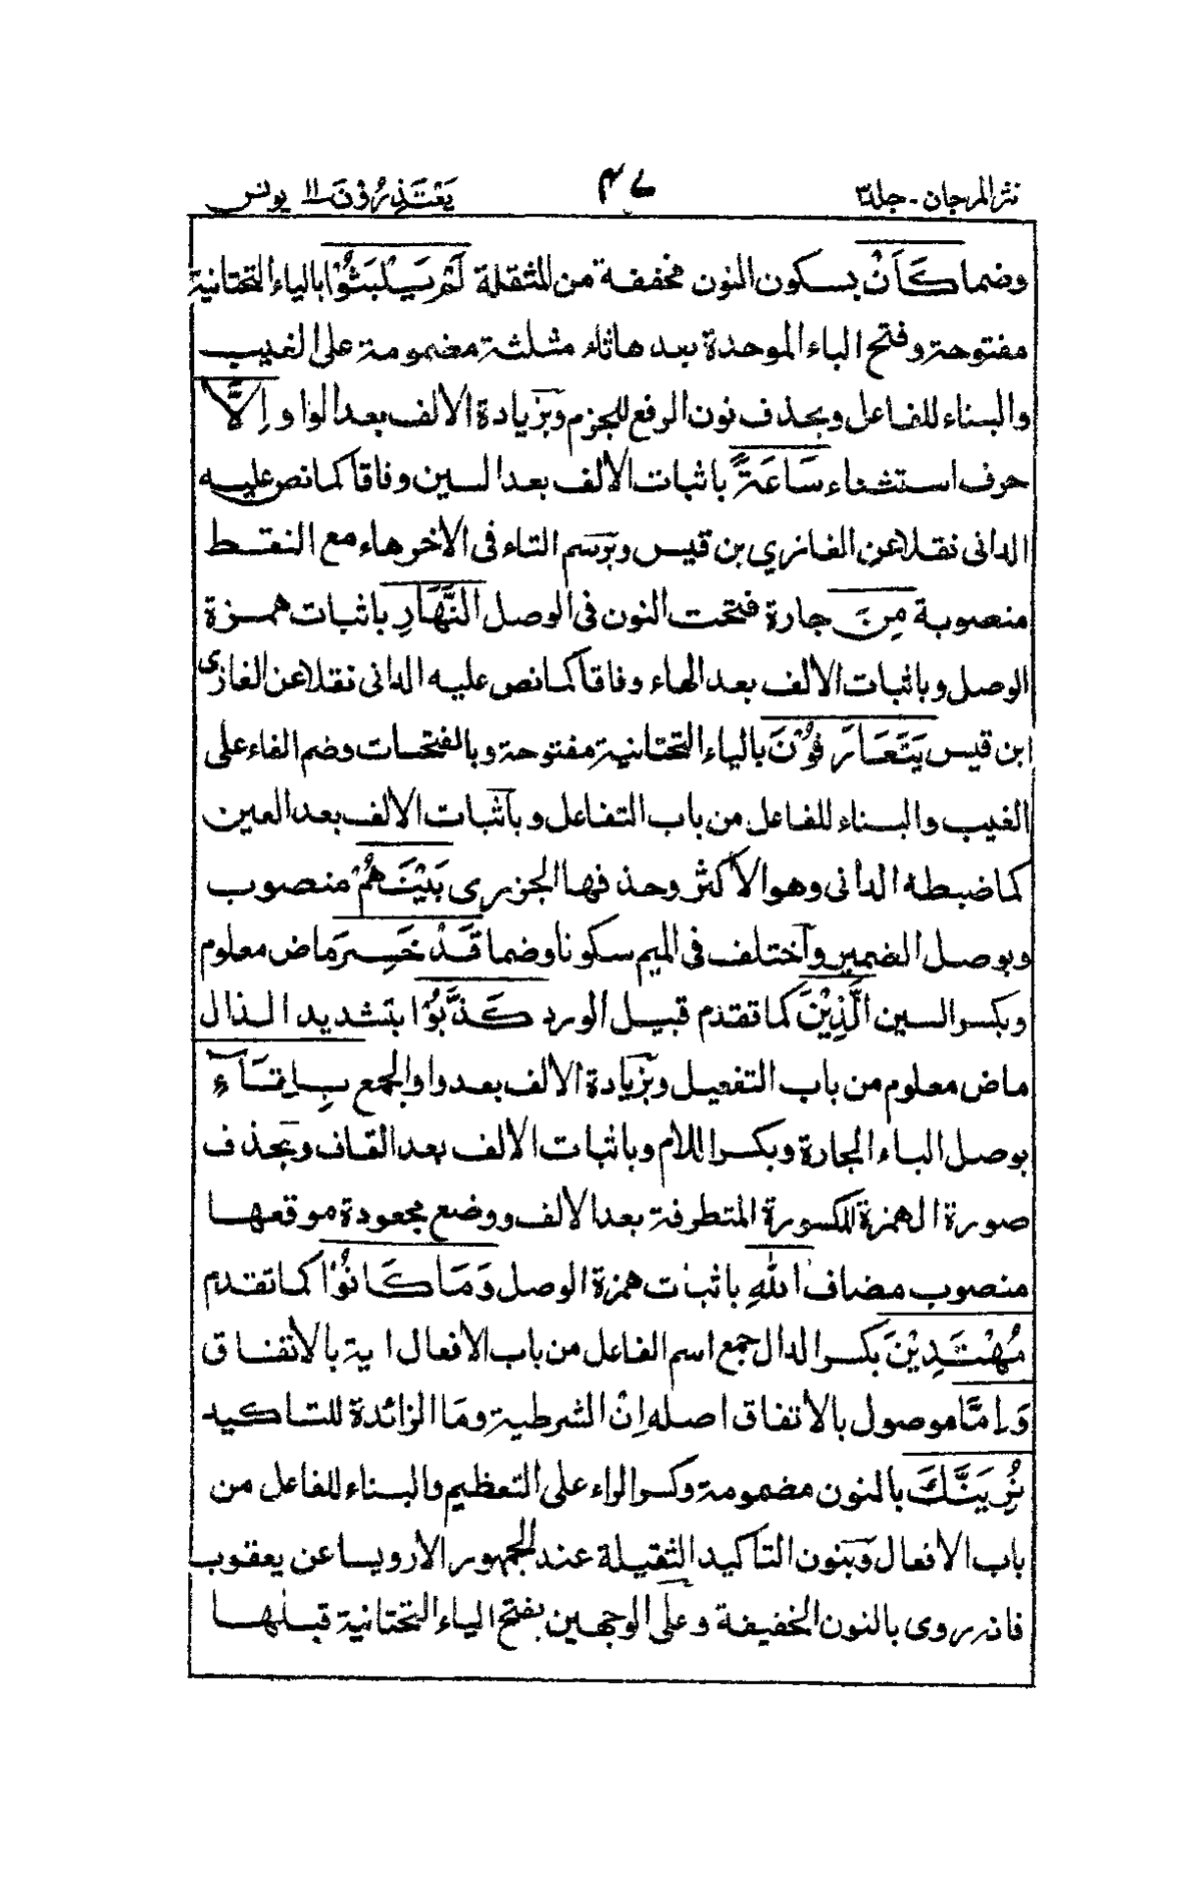 نثر المرجان - جلد٣
٤٧
يَعْتَذِرُوْنَ ١١ يونس
وضما كَاَنْ بسكون النون مخففة من المثقلة لَمْ يَلْبَثُوْا بالياء التحتانية
مفتوحة وفتح الباء الموحدة بعدها ثاء مثلثة مضمومة على الغيب
والبناء للفاعل وبحذف نون الرفع للجزم وبزيادة الالف بعد الواو اِلَّا
حرف استثناء سَاعَةً باثبات الالف بعد السين وفاقا كما نص عليه
الدانى نقلا عن الغازي بن قيس وبرسم التاء فى الاخر هاء مع النقط
منصوبة مِنَ جارة فتحت النون فى الوصل النَّهَارِ باثبات همزة
الوصل وباثبات الالف بعد الهاء وفاقا كما نص عليه الدانى نقلا عن الغازى
ابن قيس يَتَعَارَفُوْنَ بالياء التحتانية مفتوحة وبالفتحات وضم الفاء على
الغيب والبناء للفاعل من باب التفاعل وباثبات الالف بعد العين
كما ضبطه الدانى وهو الاكثر وحذفها الجزرى بَيْنَهُمْ منصوب
وبوصل الضمير واختلف فى الميم سكونا وضما قَدْ خَسِرَ ماض معلوم
وبكسر السين الَّذِيْنَ كما تقدم قبيل الورد كَذَّبُوْا بتشديد الذال
ماض معلوم من باب التفعيل وبزيادة الالف بعد واو الجمع بِلِقَآءِ
بوصل الباء الجارة وبكسر اللام وباثبات الالف بعد القاف وبحذف
صورة الهمزة المكسورة المتطرفة بعد الالف ووضع مجعودة موقعها
منصوب مضاف اللهِ باثبات همزة الوصل وَمَا كَانُوْا كما تقدم
مُهْتَدِيْنَ بكسر الدال جمع اسم الفاعل من باب الافعال اية بالاتفاق
وَاِمَّا موصول بالاتفاق اصله اِنْ الشرطية ومَا الزائدة للتاكيد
نُرِيَنَّكَ بالنون مضمومة وكسر الراء على التعظيم والبناء للفاعل من
باب الافعال وبنون التاكيد الثقيلة عند الجمهور الا رويسا عن يعقوب
فانه روى بالنون الخفيفة وعلى الوجهين بفتح الياء التحتانية قبلها